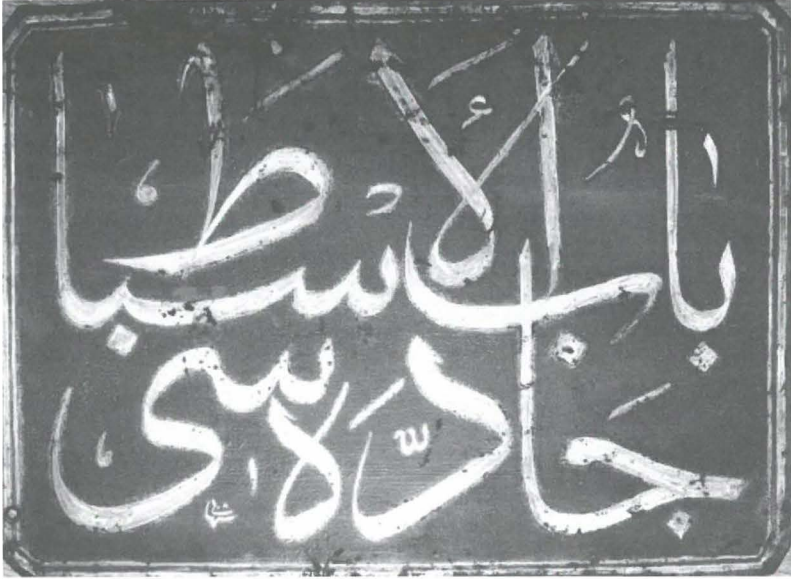 باب الأسباط
جادّه سى